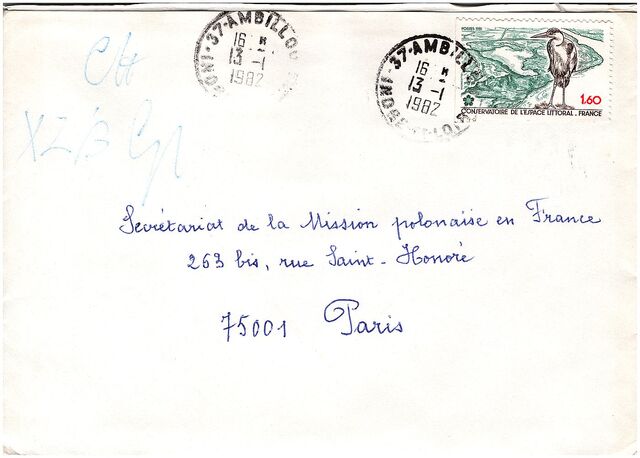 37-AMBILLOU
16 H
13 -1
1982
37-AMBILLOU
16 H
13 -1
1982
INDRE-ET-LOIRE
POSTES 1981
1.60
CONSERVATOIRE DE L'ESPACE LITTORAL. FRANCE
Secrétariat de la Mission polonaise en France
263 bis, rue Saint-Honoré
75001 Paris